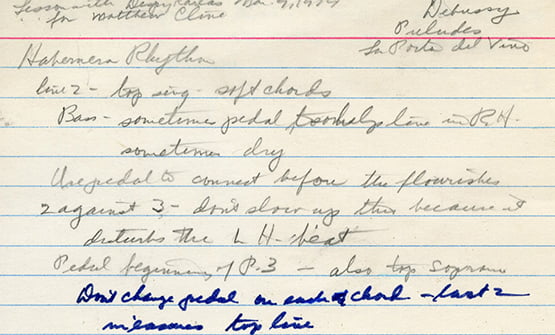 Lesson with Mar. 9, 1979
for Matthew Cline
Debussy
Preludes
La Porta del Vino
Habernera Rhythm
line 2 - top sing - soft chords
Bass - sometimes pedal line in R.H.
sometimes dry
Use pedal to connect before the flourishes
2 against 3 - don't slow up this because it
disturbs the L H - beat
Pedal beginning of P. 3 - also top soprano
Don't change pedal on each chord - last 2
measures top line